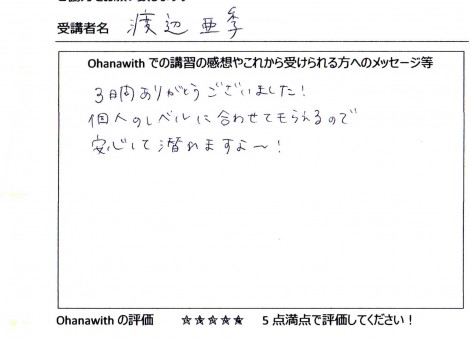 受講者名 渡辺 亜季
Ohanawith での講習の感想やこれから受けられる方へのメッセージ等
3日間ありがとうございました!
個人のレベルに合わせてもらえるので
安心して潜れますよ〜!
Ohanawith の評価 ☆☆☆☆☆ 5点満点で評価してください!